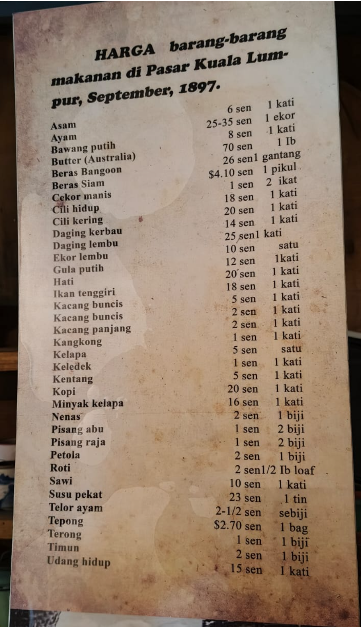 HARGA barang-barang
makanan di Pasar Kuala Lum-
pur, September, 1897.
Asam 6 sen 1 kati
Ayam 25-35 sen 1 ekor
Bawang putih 8 sen 1 kati
Butter (Australia) 70 sen 1 Ib
Beras Bangoon 26 sen1 gantang
Beras Siam $4.10 sen 1 pikul
Cekor manis 1 sen 2 ikat
Cili hidup 18 sen 1 kati
Cili kering 20 sen 1 kati
Daging kerbau 14 sen 1 kati
Daging lembu 25 sen1 kati
Ekor lembu 10 sen satu
Gula putih 12 sen 1kati
Hati 20 sen 1 kati
Ikan tenggiri 18 sen 1 kati
Kacang buncis 5 sen 1 kati
Kacang buncis 2 sen 1 kati
Kacang panjang 2 sen 1 kati
Kangkong 1 sen 1 kati
Kelapa 5 sen satu
Keledek 1 sen 1 kati
Kentang 5 sen 1 kati
Kopi 20 sen 1 kati
Minyak kelapa 16 sen 1 kati
Nenas 2 sen 1 biji
Pisang abu 1 sen 2 biji
Pisang raja 1 sen 2 biji
Petola 2 sen 1 biji
Roti 2 sen1/2 Ib loaf
Sawi 10 sen 1 kati
Susu pekat 23 sen 1 tin
Telor ayam 2-1/2 sen sebiji
Tepong $2.70 sen 1 bag
Terong 1 sen 1 biji
Timun 2 sen 1 biji
Udang hidup 15 sen 1 kati